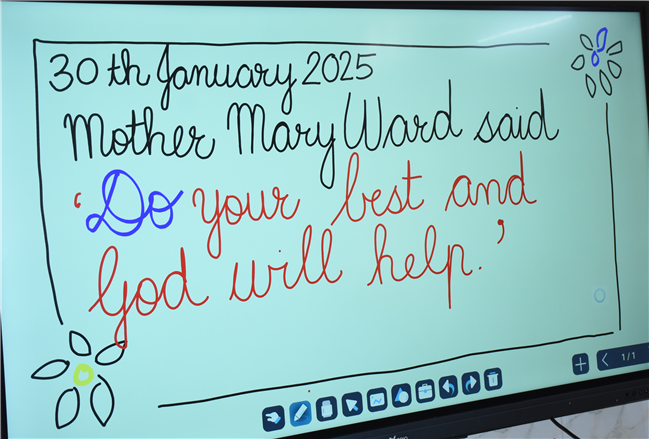 30th January 2025
Mother Mary Ward said
'Do your best and
God will help.'
1/1